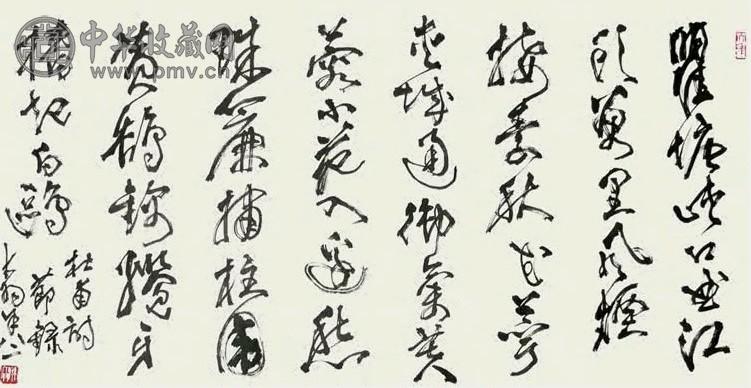 瞿塘峽口曲江
頭萬里風煙
接素秋花萼
夾城通御氣芙
蓉小苑入邊愁
珠簾繡柱圍
黃鵠錦纜牙
檣起白鷗
杜甫詩
節錄
中华收藏网
www.pmv.cn